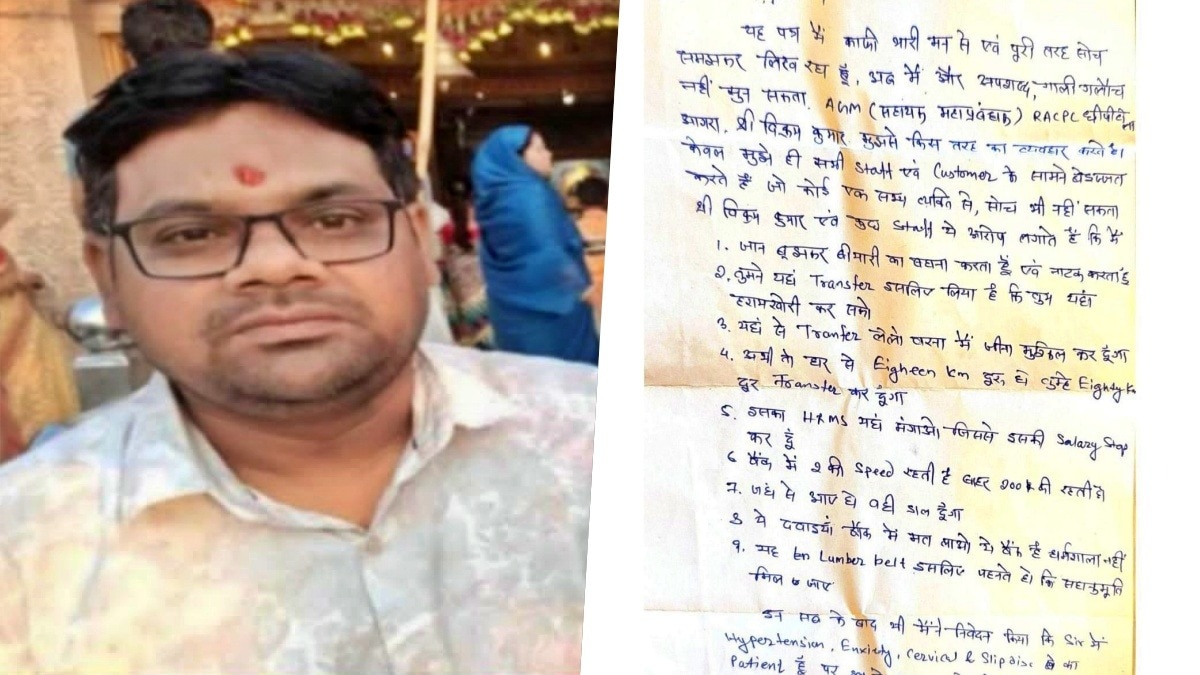 यह पत्र मैं काफी भारी मन से एवं पूरी तरह सोच
समझकर लिख रहा हूँ, अब मैं और अपशब्द, गाली गलौच
नहीं सुन सकता. AGM (सहायक महाप्रबंधक) RACPC
आगरा. श्री विक्रम कुमार मुझसे किस तरह का व्यवहार करते हैं।
केवल मुझे ही सभी staff एवं Customer के सामने बेइज्जत
करते हैं जो कोई एक सभ्य व्यक्ति से, सोच भी नहीं सकता
श्री विक्रम कुमार एवं कुछ staff ये आरोप लगाते हैं कि मैं
1. जान बूझकर बीमारी का बहाना करता हूँ एवं नाटक करता हूँ
2. तुमने यहां Transfer इसलिए लिया है कि तुम यहां
हरामखोरी कर सको
3. यहां से Tranfer लेलो वरना मैं जीना मुश्किल कर दूंगा
4. अभी तो घर से Eigheen Km दूर हो तुम्हे Eighty Km
दूर Transfer कर दूंगा
5. इसका HRMS यहां मंगाओ जिससे इसकी Salary Stop
कर दूँ
6 बैंक में 2 की Speed रहती है बाहर 200 की रहती है।
7. जहां से आए हो वही डाल दूँगा
8 ये दवाइयां बैंक में मत लाओ ये बैंक है धर्मशाला नहीं
9. यह Lumber belt इसलिए पहनते हो कि सहानुभूति
मिल जाए
इन सब के बाद भी मैंने निवेदन किया कि Sir में
Hypertension, Enxiety, Cervical & Slip disc का
Patient हूँ पर